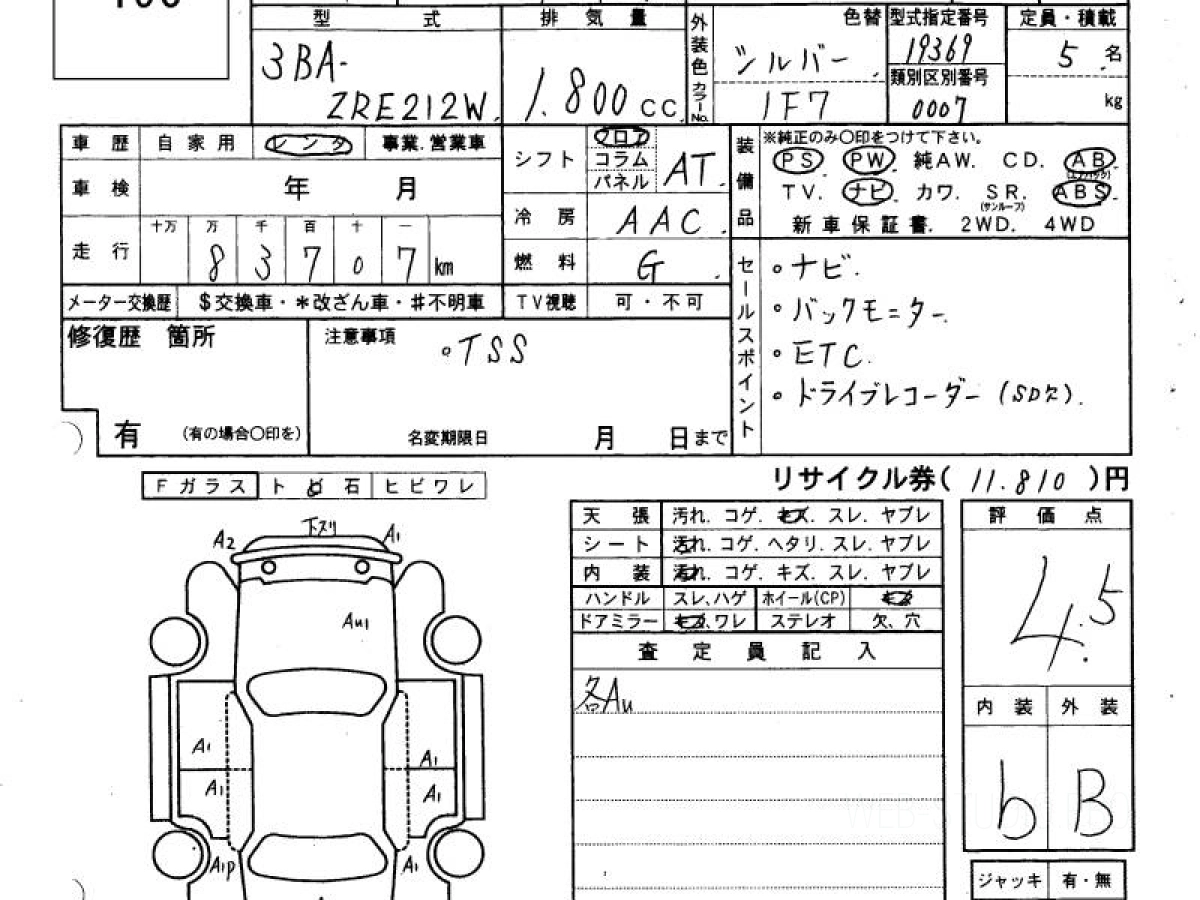 型 式
排 気 量
外装色
カラーNo.
色替
型式指定番号
定員・積載
3BA-
ZRE212W
1.800 CC
シルバー
1F7
19369
類別区別番号
0007
5 名
kg
車 歴
自 家 用
レ ン タ
事業.営業車
シフト
フロア
コラム
パネル
AT.
装備品
※純正のみ〇印をつけて下さい。
PS PW. 純AW. CD. AB
(エアバッグ)
TV. ナビ. カワ. SR. ABS.
(サンルーフ)
新 車 保 証 書. 2WD. 4WD
車 検
年 月
冷 房
AAC.
走 行
十万 万 千 百 十 一
8 3 7 0 7 km
燃 料
G.
メーター交換歴
$交換車・*改ざん車・#不明車
TV視聴
可・不可
セールスポイント
・ナビ.
・バックモニター.
・ETC.
・ドライブレコーダー(SD欠).
修復歴 箇所
有 (有の場合〇印を)
注意事項
・TSS
名変期限日 月 日まで
リサイクル券( 11.810 )円
Fガラス
ト ビ 石
ヒビワレ
下スリ
A2
A1
AU1
A1
A1
A1
A1
A1P
A1
天 張
汚れ. コゲ. キズ. スレ. ヤブレ
シート
汚れ. コゲ. ヘタリ. スレ. ヤブレ
内 装
汚れ. コゲ. キズ. スレ. ヤブレ
ハンドル
スレ、ハゲ
ホイール(CP)
キズ
ドアミラー
キズ、ワレ
ステレオ
欠、穴
査 定 員 記 入
各AU
評 価 点
4.5
内 装
外 装
b
B
ジャッキ
有・無